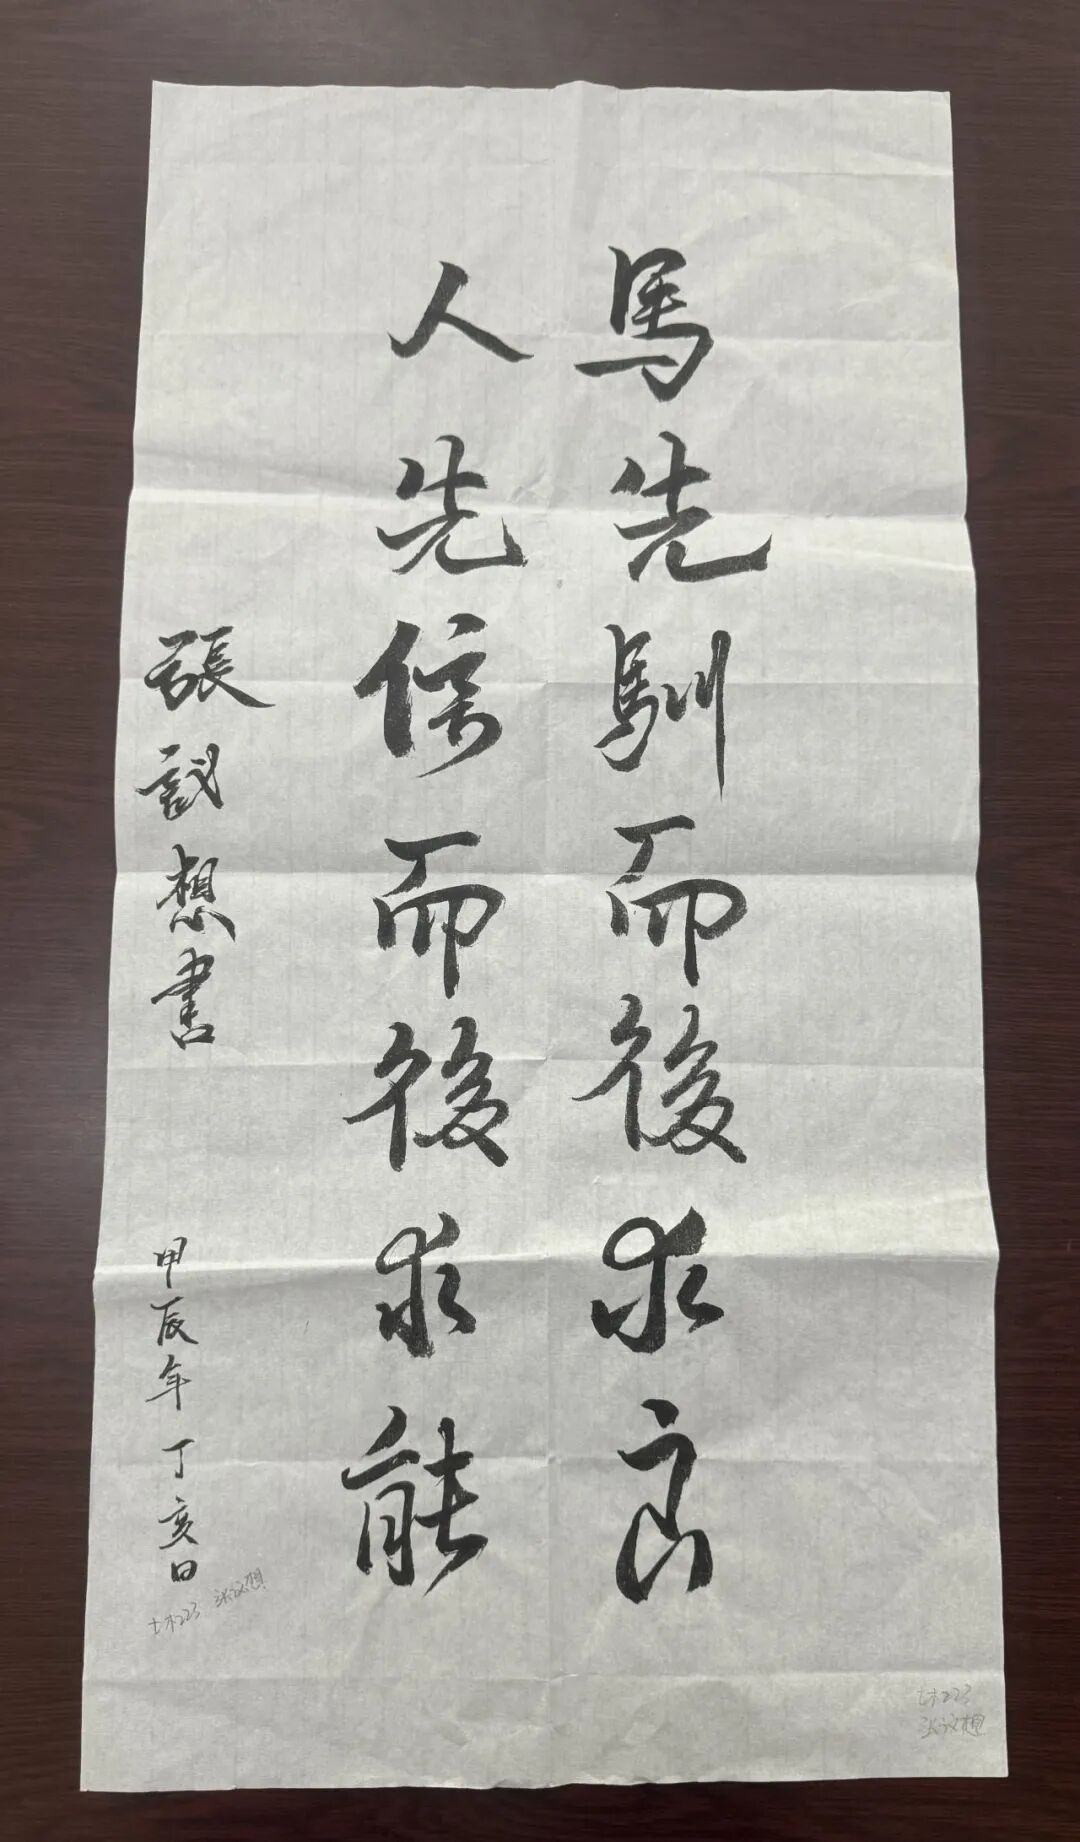 馬先馴而後求良
人先信而後求能
張议想書
甲辰年丁亥日
土木223 张议想
土木223
张议想